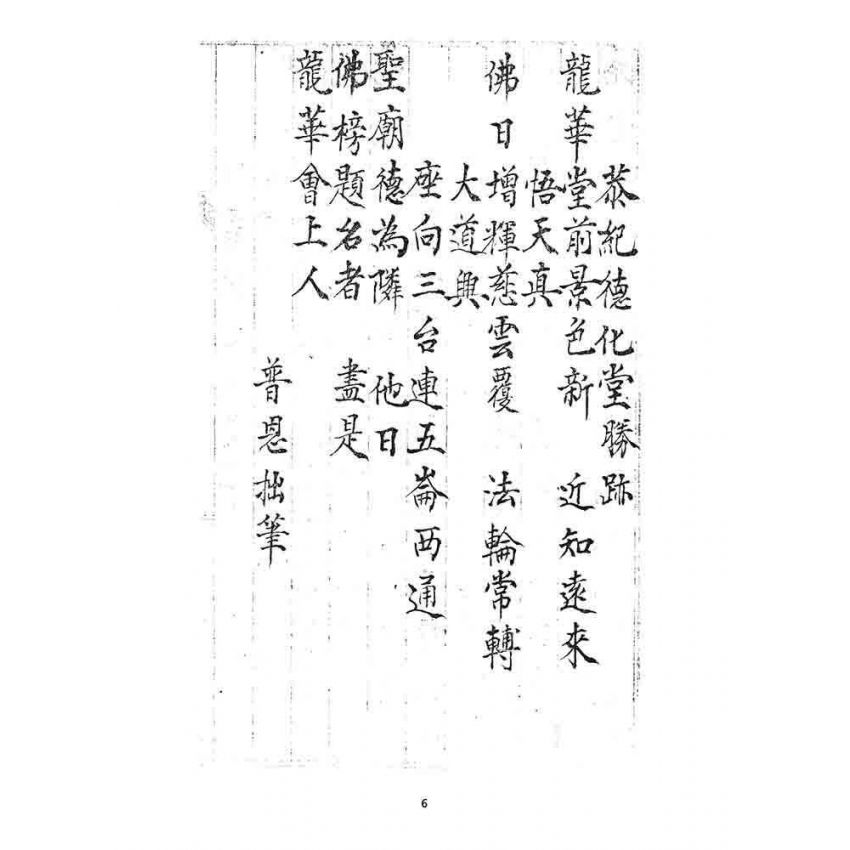 恭紀德化堂勝跡
龍華堂前景色新 近知遠來
悟天真
佛日增輝慈雲覆 法輪常轉
大道興
座向三台連五崙西通
聖廟德為隣 他日
佛榜題名者 盡是
龍華會上人
普恩拙筆
6